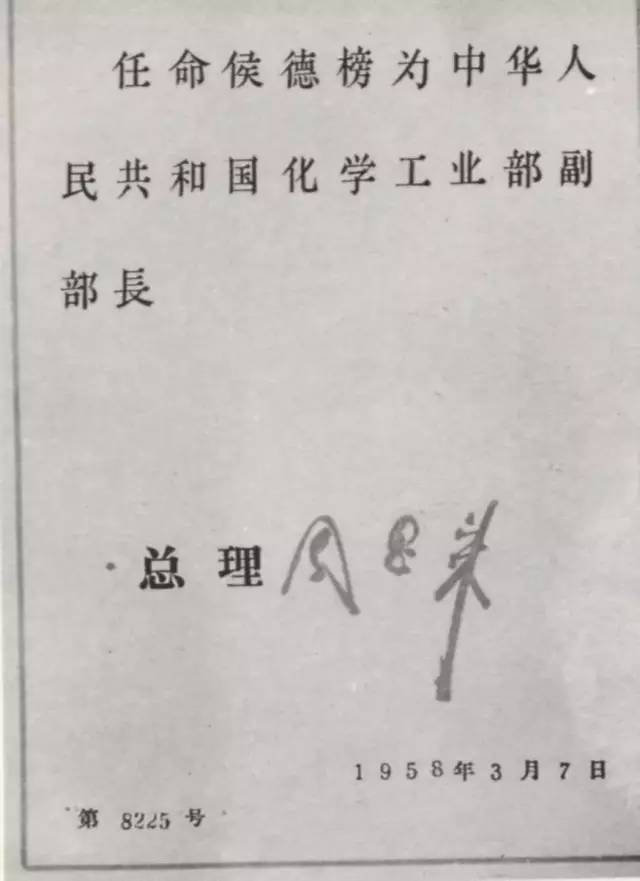 任命侯德榜为中华人
民共和国化学工业部副
部長
总理 周恩来
1958年3月7日
第 8225 号